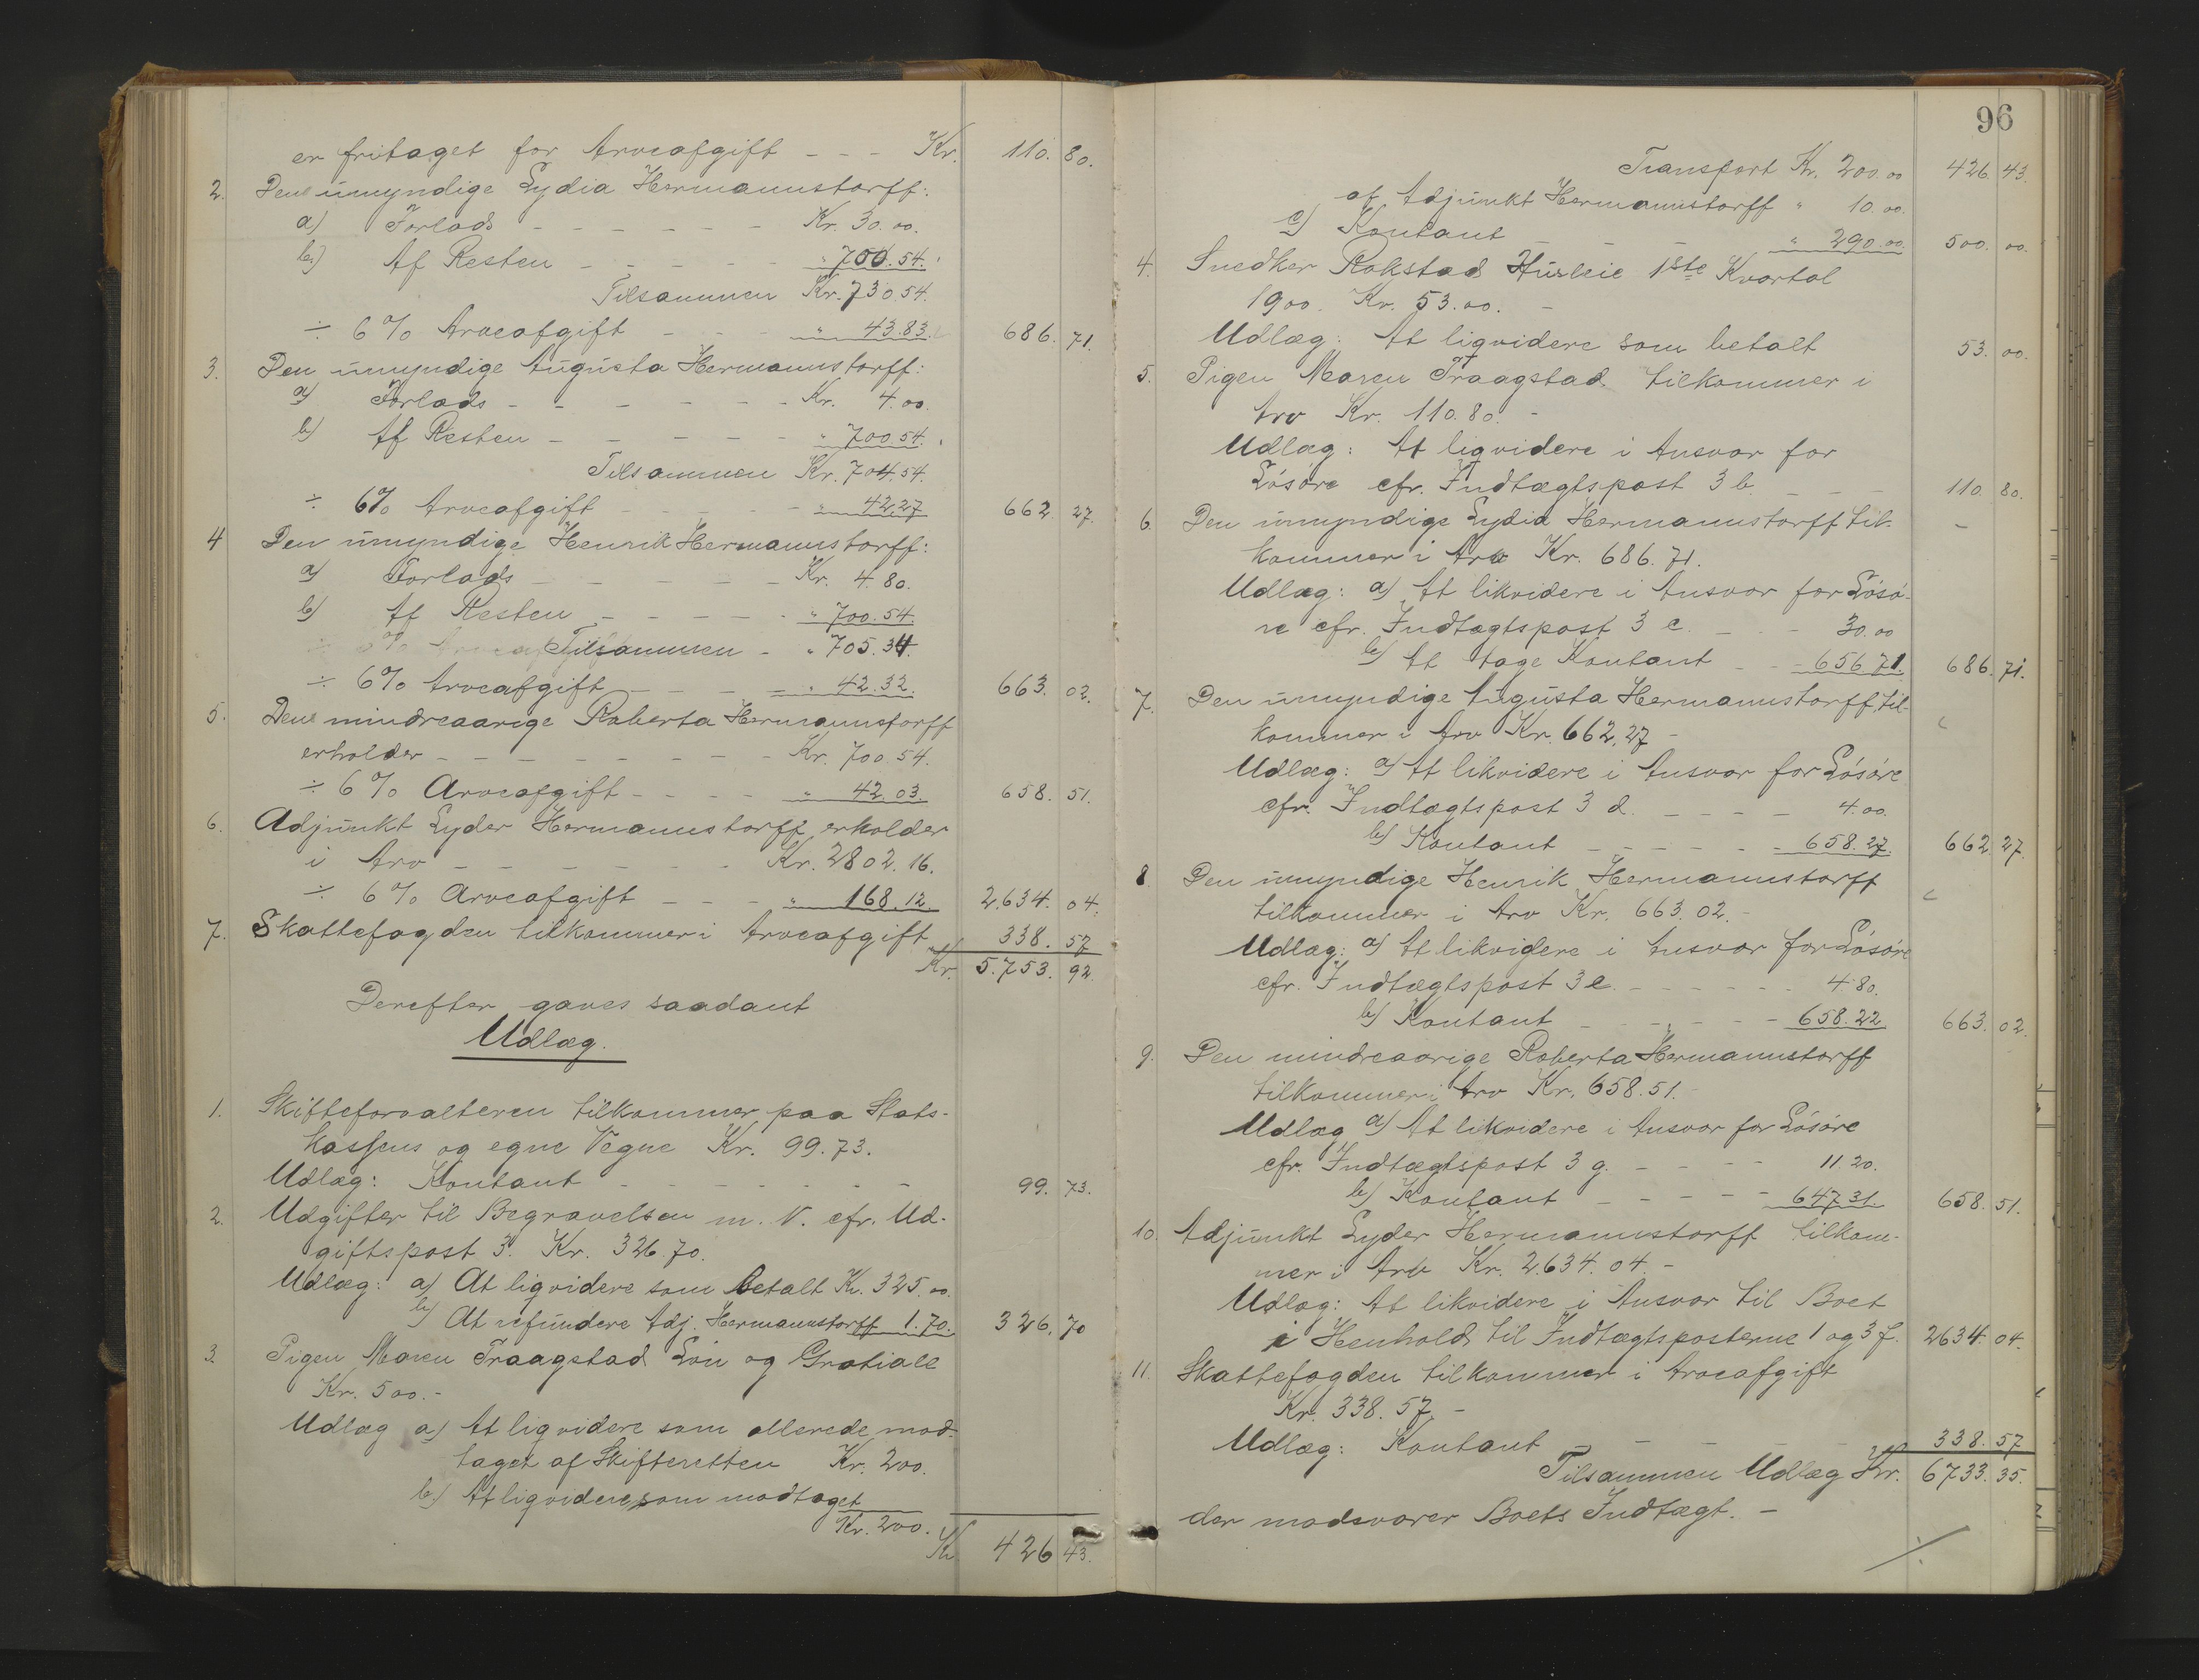 er fritaget for Arveafgift - - - Kr. 110. 80.
2. Den umyndige Lydia Hermannstorff:
a) Forlods - - - - - - Kr. 30.00.
b) Af Resten - - - - - " 700.54.
Tilsammen Kr. 730.54.
÷ 6% Arveafgift - - - " 43.83. 686. 71.
3. Den umyndige Augusta Hermannstorff:
a) Forlods - - - - - - Kr. 4.00.
b) Af Resten - - - - - " 700.54.
Tilsammen Kr. 704.54.
÷ 6% Arveafgift - - - - " 42.27 662. 27.
4 Den umyndige Henrik Hermannstorff:
a) Forlods - - - - - Kr. 4.80.
b) Af Resten - - - - - " 700.54.
Tilsammen - " 705.34.
÷ 6% Arveafgift - - - - " 42.32. 663. 02.
5. Den mindreaarige Roberta Hermannstorff
erholder - - - - - - - Kr. 700.54.
÷ 6% Arveafgift - - - - " 42.03. 658. 51.
6. Adjunkt Lyder Hermannstorff erholder
i Arv - - - - - - Kr. 2802.16.
÷ 6% Arveafgift - - - " 168.12. 2.634. 04.
7. Skattefogden tilkommer i Arveafgift 338. 57
Kr. 5.753. 92.
Derefter gaves saadant
Udlæg.
1. Skifteforvalteren tilkommer paa Stats-
kassens og egne Vegne Kr. 99.73.
Udlæg: Kontant - - - - - - 99. 73.
2. Udgifter til Begravelsen m. V. cfr. Ud-
giftspost 3. Kr. 326.70.
Udlæg: a) At ligvidere som betalt Kr. 325.00.
b) At refundere Adj. Hermannstorff 1.70. 326. 70
3. Pigen Maren Traagstad Løn og Gratiale
Kr. 500.-
Udlæg a) At ligvidere som allerede mod-
taget af Skifteretten Kr. 200.
b) At ligvidere som modtaget
Kr. 200.
Kr. 426 43.
96
Transport Kr. 200.00 426. 43.
af Adjunkt Hermannstorff " 10.00.
c) Kontant - - - " 290.00. 500. 00.
4. Snedker Rokstad Husleie 1ste Kvartal
1900. Kr. 53.00. -
Udlæg: At ligvidere som betalt 53. 00.
5. Pigen Maren Traagstad tilkommer i
Arv Kr. 110.80. -
Udlæg: At ligvidere i Ansvar for
Løsøre cfr. Indtægtspost 3 b. - - - 110. 80.
6. Den umyndige Lydia Hermannstorff til-
kommer i Arv Kr. 686.71.
Udlæg: a) At likvidere i Ansvar for Løsø-
re cfr. Indtægtspost 3 c. - - - 30.00
b) At tage Kontant - - - 656.71. 686. 71.
7. Den umyndige Augusta Hermannstorff til-
kommer i Arv Kr. 662,27 -
Udlæg: a) At likvidere i Ansvar for Løsøre
cfr. Indtægtspost 3 d. - - - - 4.00.
b) Kontant - - - - - - 658.27. 662. 27.
8. Den umyndige Henrik Hermannstorff
tilkommer i Arv Kr. 663.02. -
Udlæg: a) At likvidere i Ansvar for Løsøre
cfr. Indtægtspost 3 e. - - - - - 4.80.
b) Kontant - - - - - 658.22 663. 02.
9. Den mindreaarige Roberta Hermannstorff
tilkommer i Arv Kr. 658.51.-
Udlæg a) At likvidere i Ansvar for Løsøre
cfr. Indtægtspost 3 g. - - - - 11.20.
b) Kontant - - - - - 647.31. 658. 51.
10. Adjunkt Lyder Hermannstorff tilkom-
mer i Arv Kr. 2.634.04. -
Udlæg: At likvidere i Ansvar til Boet
i Henhold til Indtægtsposterne 1 og 3 f. 2634. 04.
11. Skattefogden tilkommer i Arveafgift
Kr. 338.57. -
Udlæg: Kontant - - - - 338. 57
Tilsammen Udlæg Kr. 6733. 35.
der modsvarer Boets Indtægt. -